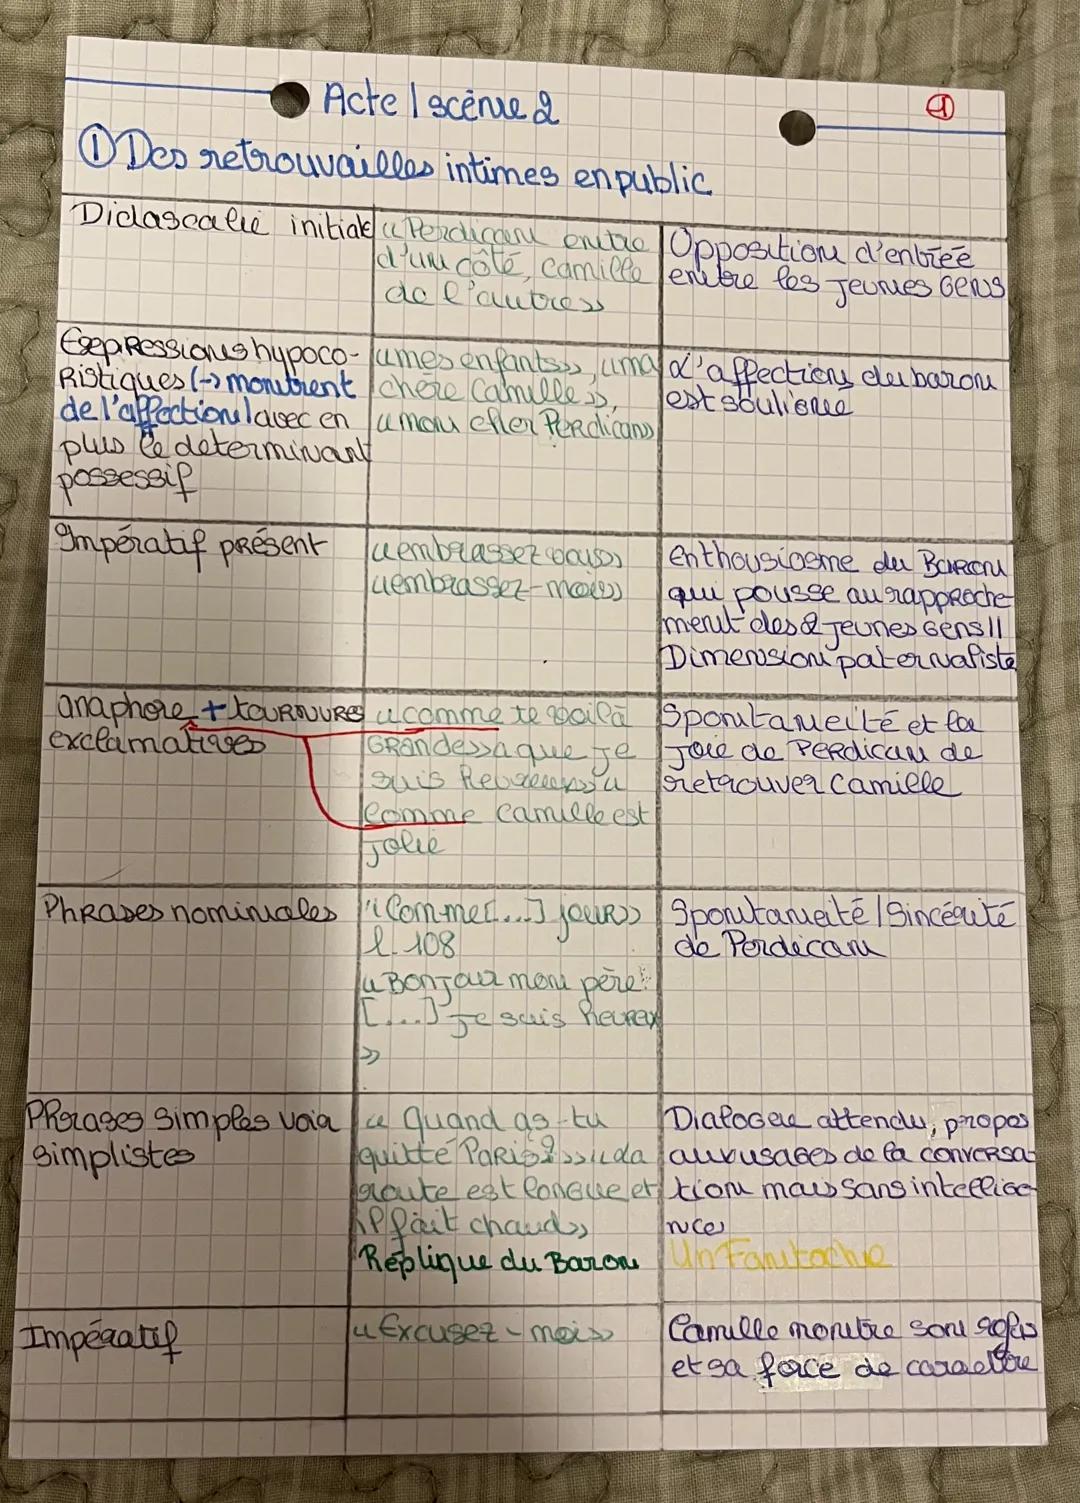 Acte 1 scène 2
①
① Des retrouvailles intimes en public
Didascalie initiale
« Perdican entre
d'un côté, Camille
de l'autre »
Opposition d'entrée
entre les jeunes gens
Expressions hypoco-
ristiques (→ montrent
de l'affection) avec en
plus le determinant
possessif
« mes enfants », « ma
chère Camille »,
« mon cher Perdican »
L'affection du baron
est souligne
Impératif présent
« embrassez vous »
« embrassez-moi »
enthousiasme du Baron
qui pousse au rapproche
ment des 2 jeunes gens //
Dimension paternaliste
anaphore + tournures
exclamatives
« comme te voilà
grande » « que je
suis heureux » «
Comme Camille est
jolie
Spontaneité et la
joie de Perdican de
retrouver Camille
Phrases nominales
« Comme [...] jour »
l. 108
« Bonjour mon père !
[...] je suis heureux
»
Spontaneité / Sincérité
de Perdican
Phrases simples voir
simplistes
« Quand as-tu
quitté Paris ? » « La
route est longue et
il fait chaud »
Réplique du Baron
Dialogue attendu, propos
aux usages de la conversa-
tion mais sans intellige-
nce
Un Fantoche
Impératif
« Excusez-moi »
Camille montre son refus
et sa force de caractère